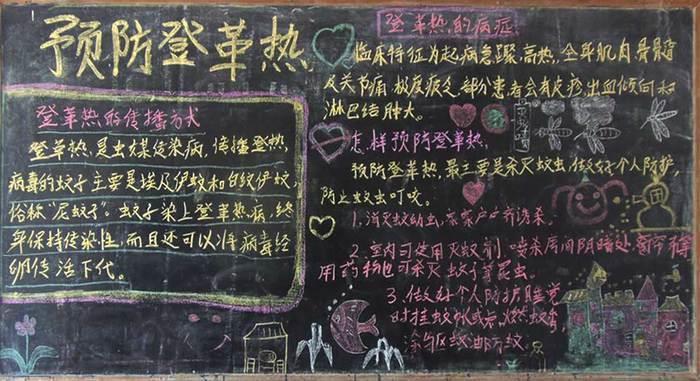 预防登革热
登革热的传播方式
登革热,是虫媒传染病,传播登热,
病毒的蚊子主要是埃及伊蚊和白纹伊蚊,
俗称“尼蚊子”。蚊子染上登革热病,终
年保持传染性,而且还可以准病毒经
卵传治下代。
登革热的病症
临床特征为起病急骤,高热,全身肌肉骨髓
及关节痛极度疲乏,部分患者会有皮疹出血倾向和
淋巴结肿大。
怎样预防登革热,
预防登革热,最主要是杀灭蚊虫,做好个人防护,
防止蚊虫叮咬。
1.消灭蚊幼虫,家家户户
2.室内可使用灭蚊剂,喷杀房间阴暗处
用药物也可杀灭蚊子等昆虫。
3.做好个人防护睡觉
时挂蚊帐或点燃蚊香,
涂 防蚊。